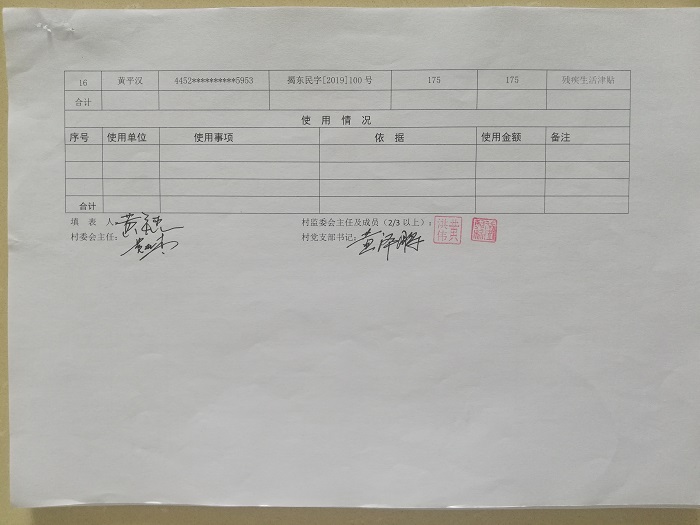 16 黄平汉 4452**********5953 揭东民字[2019]100号 175 175 残疾生活津贴
合计
使 用 情 况
序号 使用单位 使用事项 依 据 使用金额 备注
合计
填 表 人: 村监委会主任及成员(2/3以上):
村委会主任: 村党支部书记: 黄泽鹏